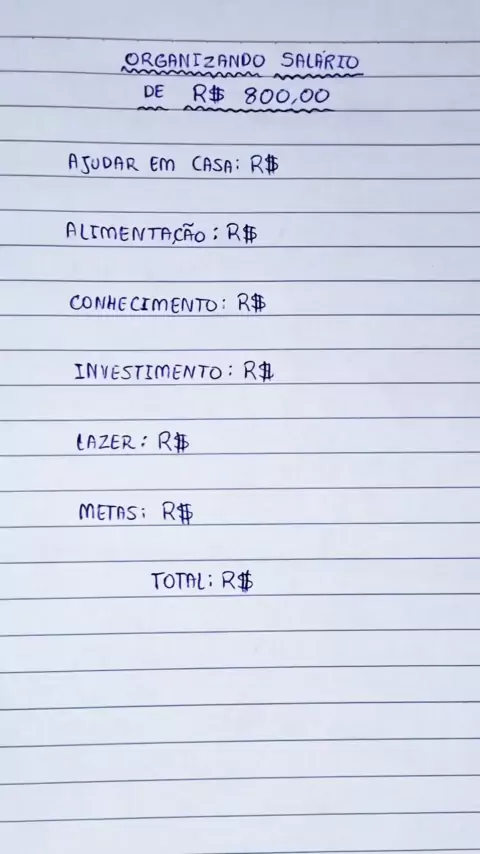 ORGANIZANDO SALÁRIO
DE R$ 800,00
AJUDAR EM CASA: R$
ALIMENTAÇÃO: R$
CONHECIMENTO: R$
INVESTIMENTO: R$
LAZER: R$
METAS: R$
TOTAL: R$